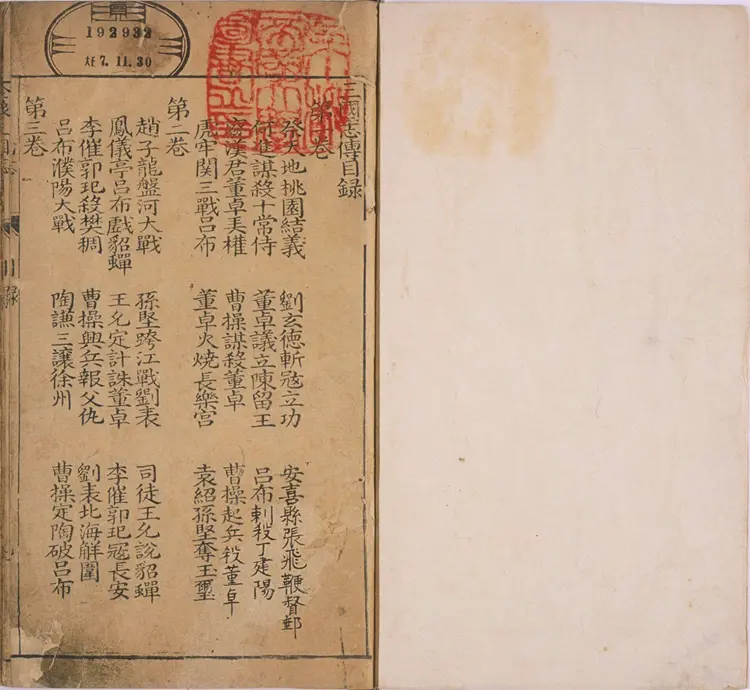 192932
大正 7.11.30
三國志傳目錄
第一卷
祭天地桃園結義 劉玄德斬寇立功 安喜縣張飛鞭督郵
何進謀殺十常侍 董卓議立陳留王 呂布刺殺丁建陽
廢漢君董卓弄權 曹操謀殺董卓 曹操起兵殺董卓
虎牢関三戰呂布 董卓火燒長樂宮 袁紹孫堅奪玉璽
第二卷
趙子龍盤河大戰 孫堅跨江戰劉表 司徒王允說貂蟬
鳳儀亭呂布戲貂蟬 王允定計誅董卓 李傕郭汜寇長安
李傕郭汜殺樊稠 曹操興兵報父仇 劉表北海觧圍
呂布濮陽大戰 陶謙三讓徐州 曹操定陶破呂布
第三卷